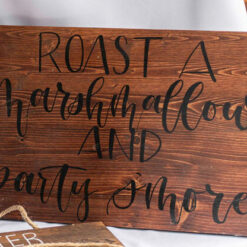 ROAST A
marshmallow
AND
party s'more
TER